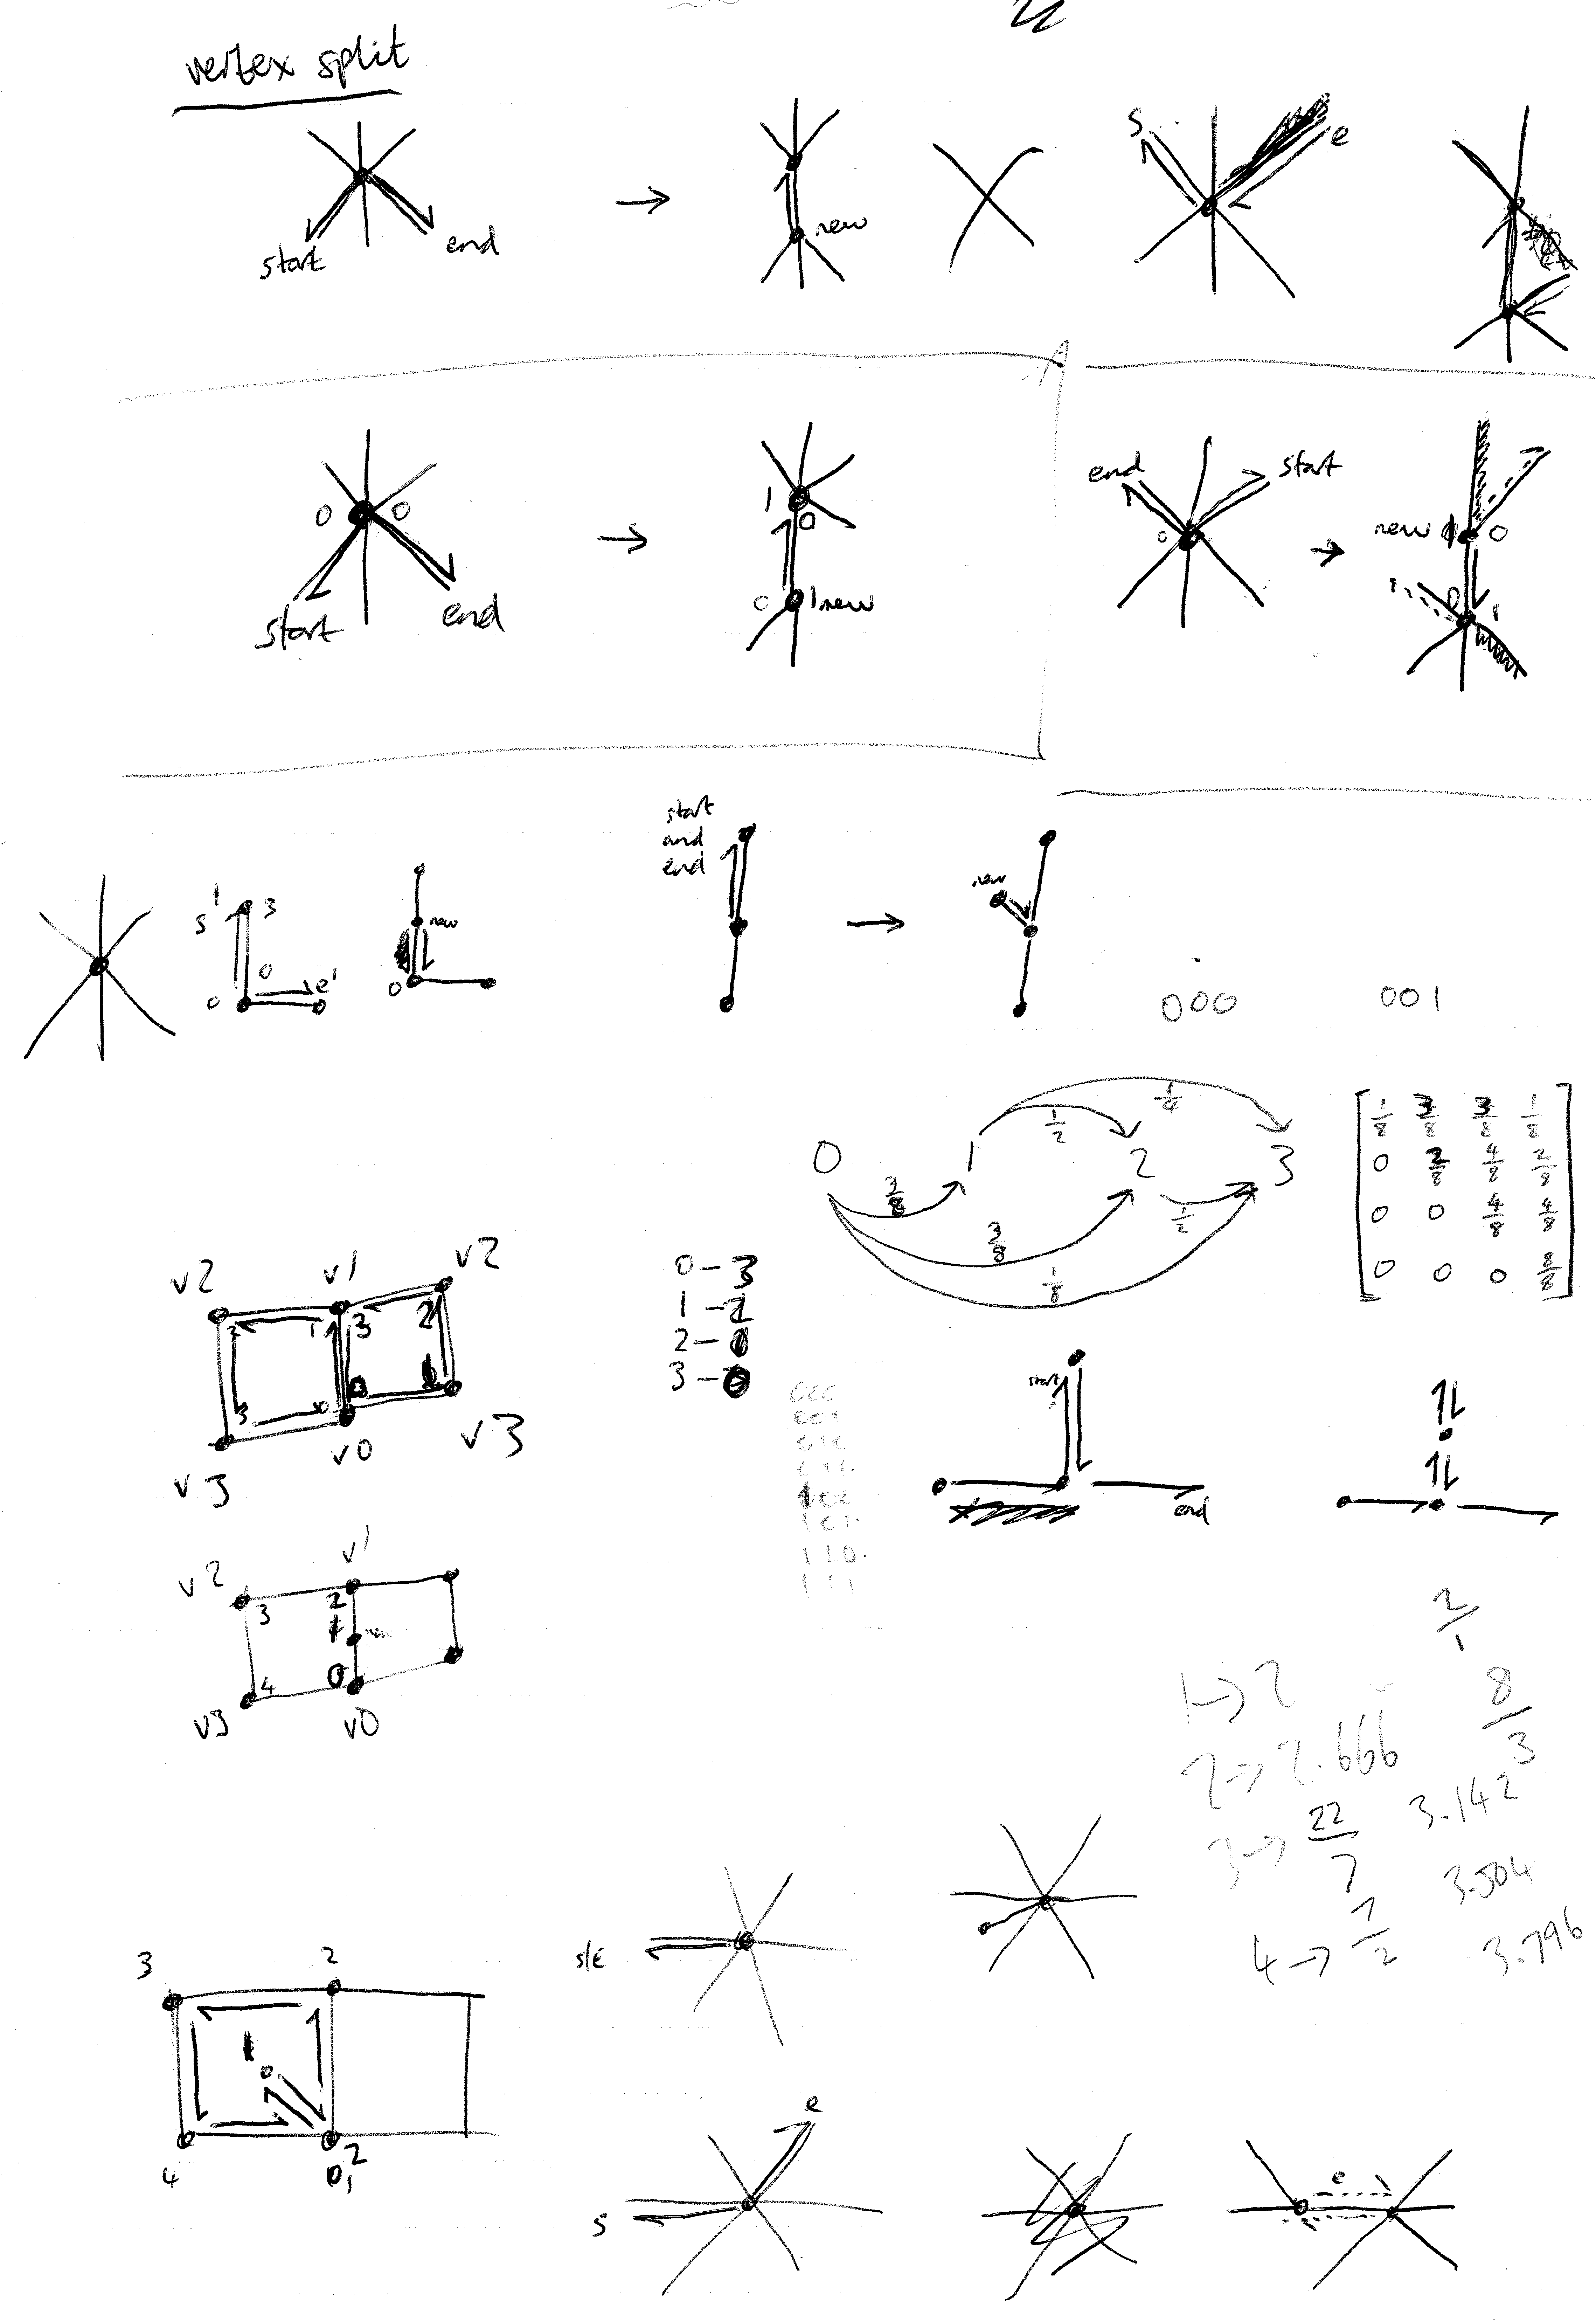 vertex split
start
end
→
new
s
e
0 0
start
end
→
1
0
0 1 new
end
start
0
→
new
0
1
start
and
end
→
new
s' 3
0
0 e'
new
0
000 001
0 1 2 3
3/8
3/8
1/8
1/2
1/4
1/2
1/8 3/8 3/8 1/8
0 2/8 4/8 2/8
0 0 4/8 4/8
0 0 0 8/8
v2 v1 v2
1 3 2
3 0
v3 v0 v3
0-3
1-2
2-
3-0
000
001
010
011
100
101
110
111
start
end
v2 v1
3 2
new
4 0
v3 v0
2/1
1→2
8/3
2→2.666
3→22/7 3.142
3.504
4→7/2
3.796
s/E
3 2
1
0
4 0,
2
e
s
e